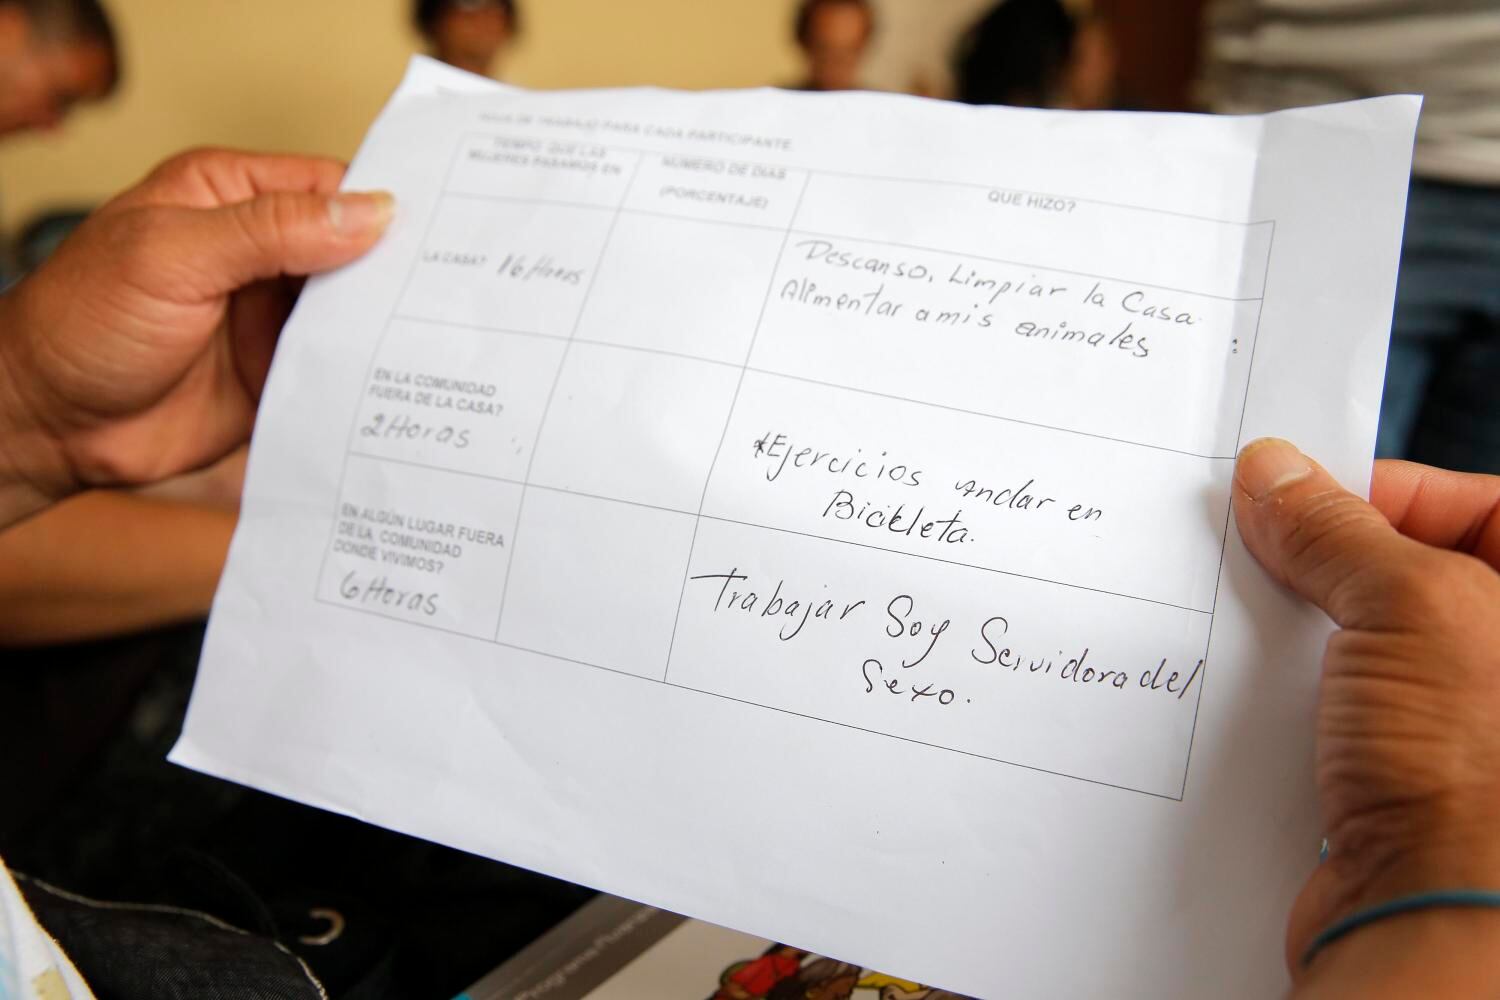 HOJA DE TRABAJO PARA CADA PARTICIPANTE.
TIEMPO QUE LAS
MUJERES PASAMOS EN
NUMERO DE DIAS
(PORCENTAJE)
QUE HIZO?
LA CASA? 16 Horas
Descanso, Limpiar la Casa
Alimentar a mis animales
EN LA COMUNIDAD
FUERA DE LA CASA?
2 Horas
*Ejercicios andar en
Bicicleta.
EN ALGÚN LUGAR FUERA
DE LA COMUNIDAD
DONDE VIVIMOS?
6 Horas
Trabajar Soy Servidora del
Sexo.
Programa